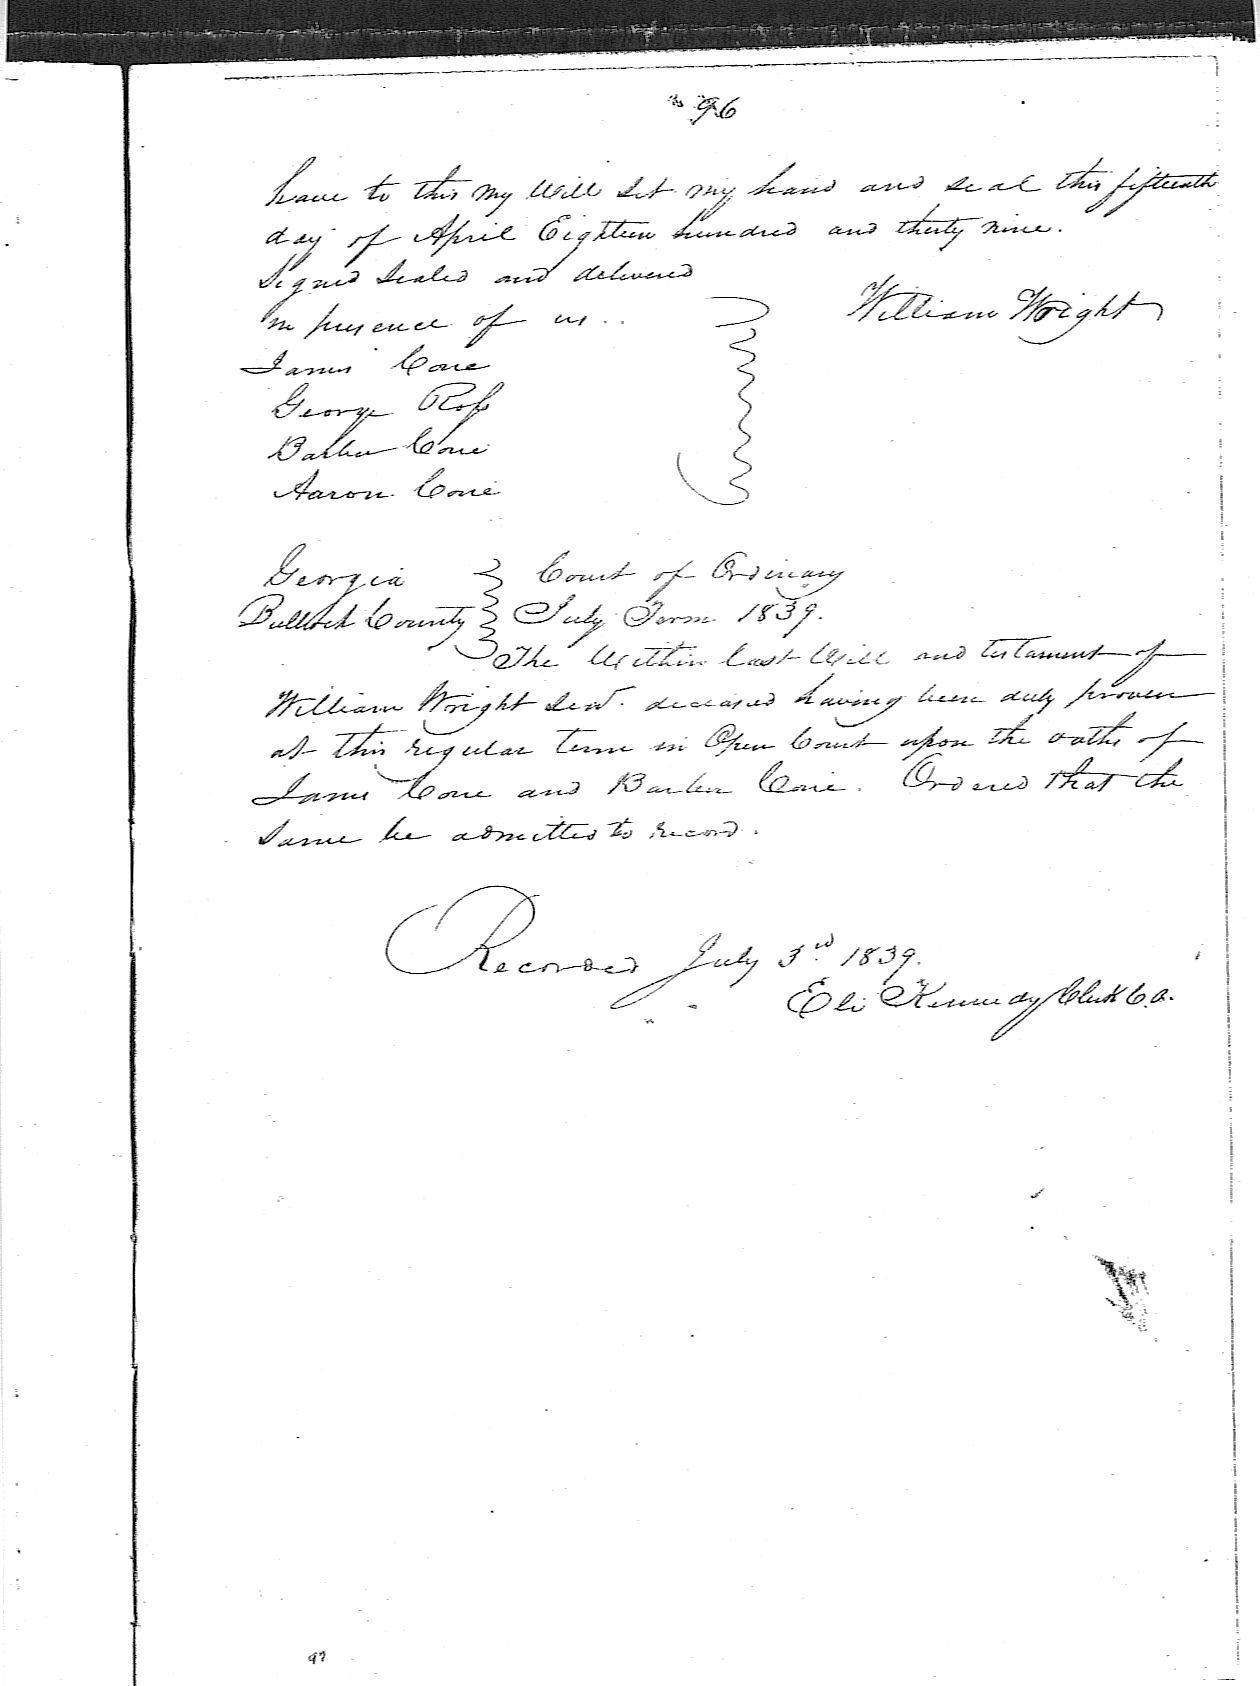 96
have to this my Will Set my hand and seal this fifteenth
day of April Eighteen hundred and thirty nine.
Signed Sealed and delivered
in presence of us..
William Wright
James Cone
George Ross
Barber Cone
Aaron Cone
Georgia
Bulloch County
Court of Ordinary
July Term 1839.
The Within Last Will and testament of
William Wright Senr. deceased having been duly proven
at this regular term in Open Court upon the oaths of
James Cone and Barber Cone. Ordered that the
Same be admitted to record.
Recorded July 3rd 1839.
Eli Kennedy Clerk C.O.
97